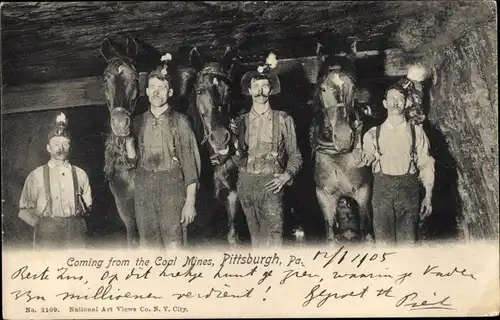 Coming from the Coal Mines, Pittsburgh, Pa. 12/8 1905
Beste Zus, Op dit hoekje kunt ge zien, waarin je Vader
z'n millioenen verdient! Gegroet t. à. t. Piet
No. 2109. National Art Views Co. N. Y. City.